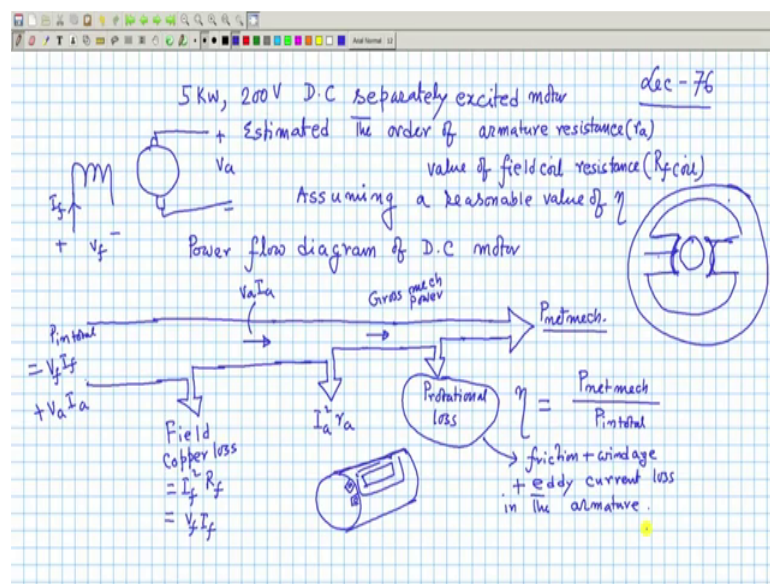 Arial Normal 12
Lec - 76
5 KW, 200V D.C separately excited motor
+ Estimated the order of armature resistance (ra)
Va
value of field coil resistance (Rf coil)
If
Assuming a reasonable value of η
+ Vf -
-
Power flow diagram of D.C motor
VaIa
Gross mech
power
Pin total
= VfIf
+ VaIa
Pnet mech.
Field
Copper loss
= If² Rf
= VfIf
Ia² ra
Protational
loss
η = Pnet mech
Pin total
friction + windage
+ eddy current loss
in the armature.